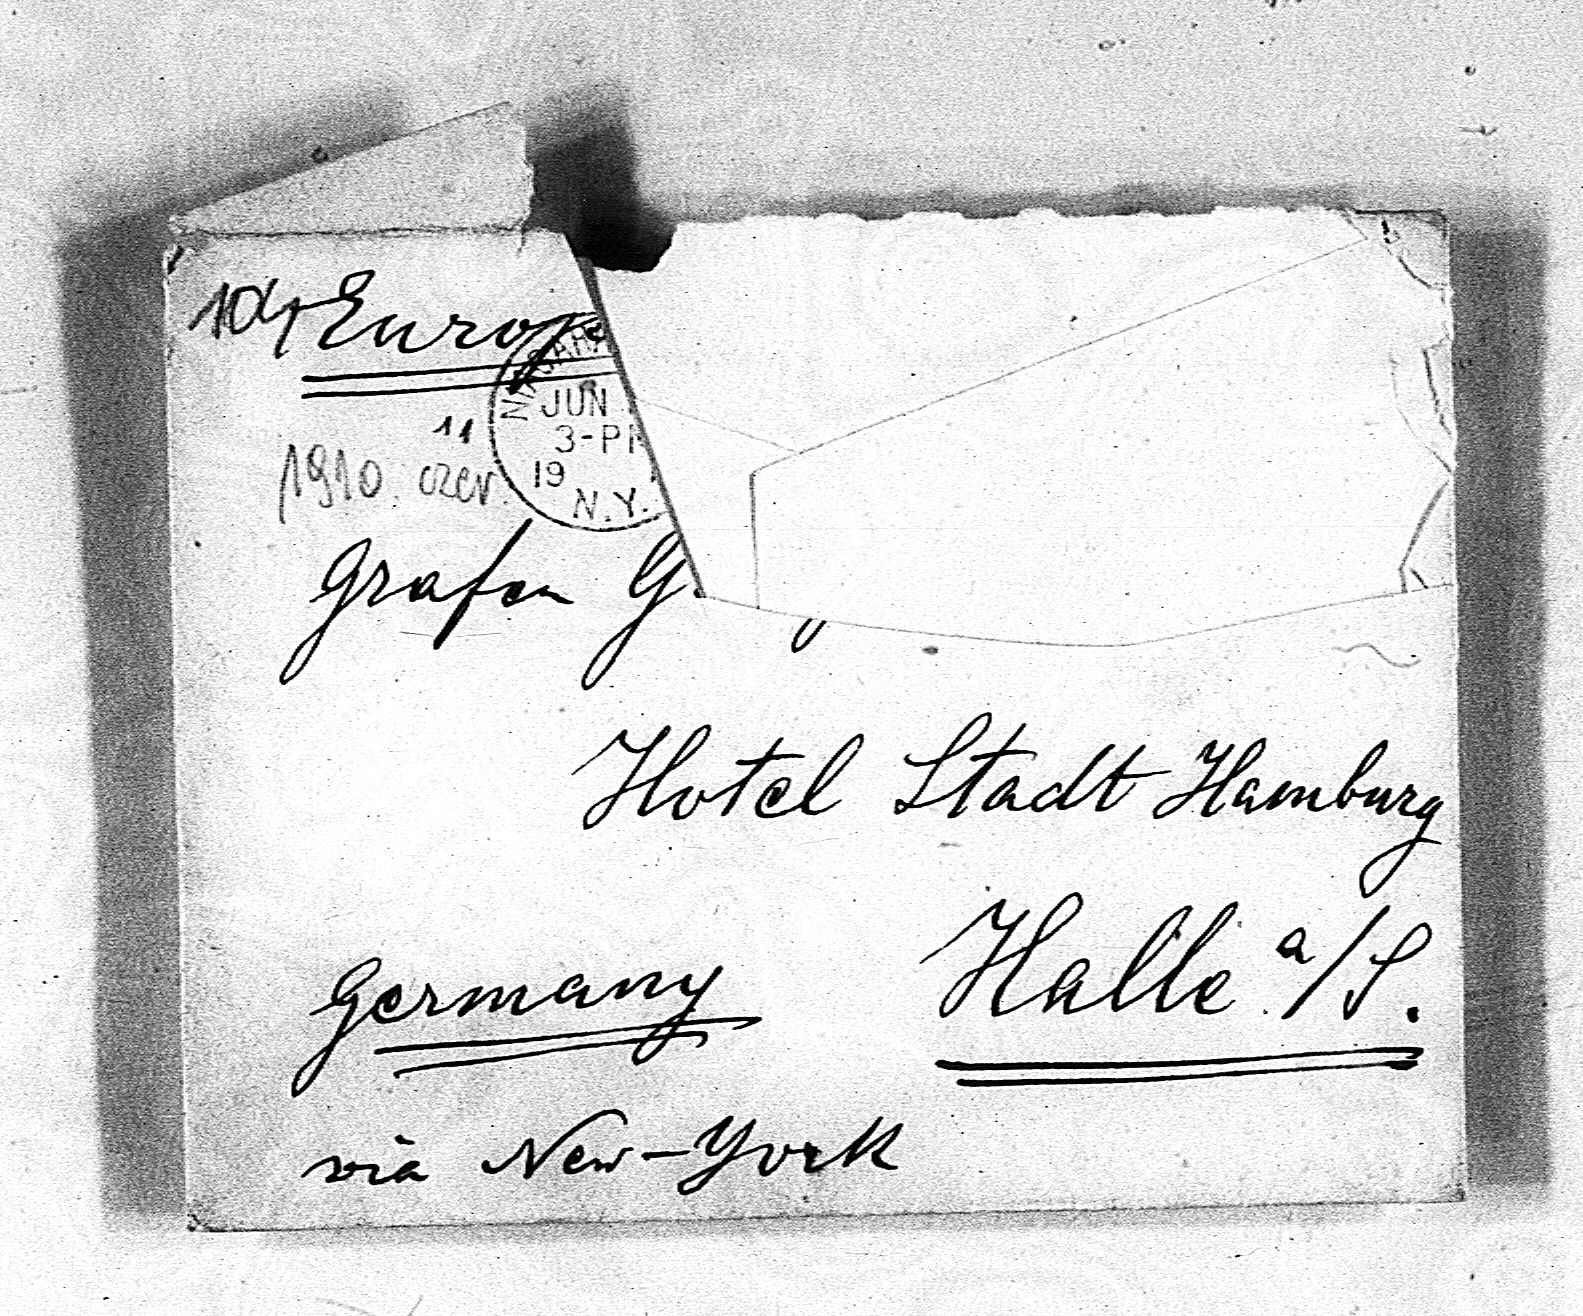 104 Europ
NIAGARA
JUN
3-PM
19
N.Y.
11
1910. czer.
Grafen G
Hotel Stadt Hamburg
Halle a/S.
Germany
via New-York